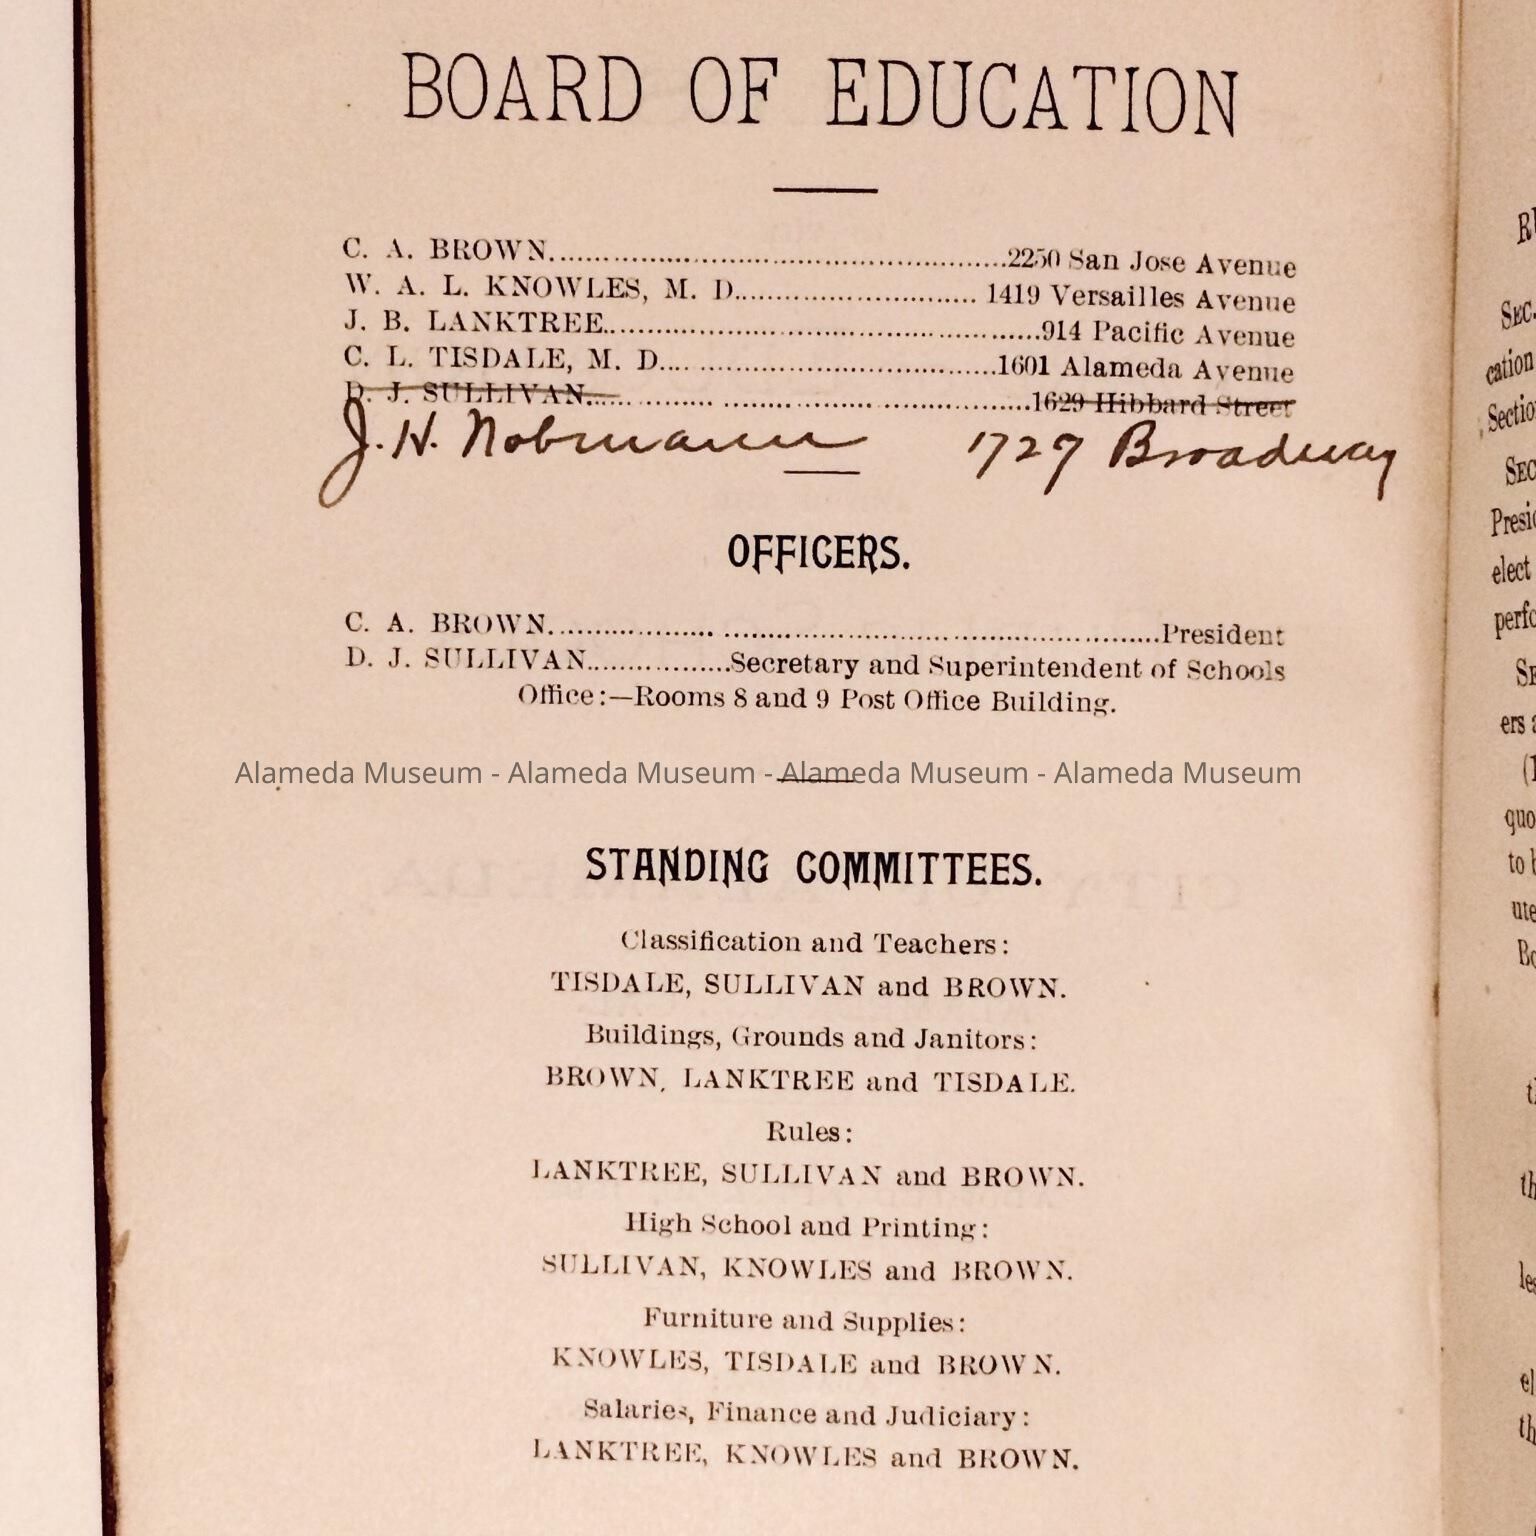 BOARD OF EDUCATION
C. A. BROWN..............................2250 San Jose Avenue
W. A. L. KNOWLES, M. D.............................. 1419 Versailles Avenue
J. B. LANKTREE..............................914 Pacific Avenue
C. L. TISDALE, M. D..............................1601 Alameda Avenue
D. J. SULLIVAN..............................1629 Hibbard Street
J. H. Nobmann 1727 Broadway
OFFICERS.
C. A. BROWN..............................President
D. J. SULLIVAN..................Secretary and Superintendent of Schools
Office:—Rooms 8 and 9 Post Office Building.
Alameda Museum - Alameda Museum - Alameda Museum - Alameda Museum
STANDING COMMITTEES.
Classification and Teachers:
TISDALE, SULLIVAN and BROWN.
Buildings, Grounds and Janitors:
BROWN, LANKTREE and TISDALE.
Rules:
LANKTREE, SULLIVAN and BROWN.
High School and Printing:
SULLIVAN, KNOWLES and BROWN.
Furniture and Supplies:
KNOWLES, TISDALE and BROWN.
Salaries, Finance and Judiciary:
LANKTREE, KNOWLES and BROWN.
SEC.
cation
Section
SEC
elect
ers
to